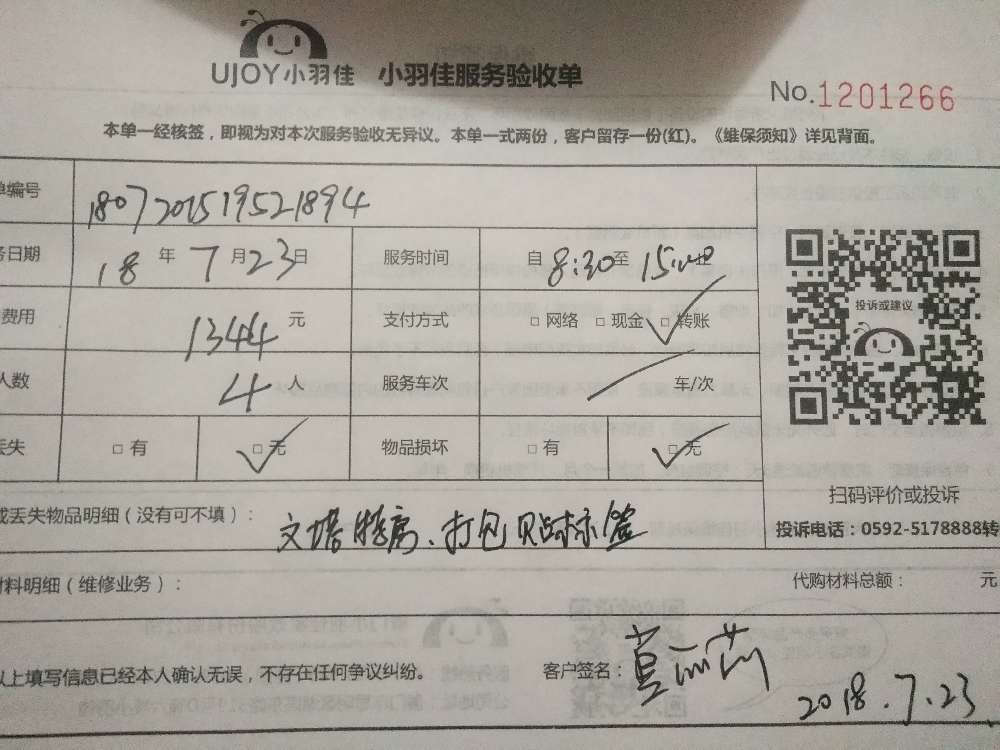 UJOY小羽佳 小羽佳服务验收单
No.1201266
本单一经核签，即视为对本次服务验收无异议。本单一式两份，客户留存一份(红)。《维保须知》详见背面。
单编号 180720151952189４
务日期 18 年 7 月 23 日 服务时间 自 8:30 至
费用 1344 元 支付方式 □ 网络 □ 现金 □ 转账
人数 4 人 服务车次 车/次
丢失 □ 有 □ 无 物品损坏 □ 有 □ 无
投诉或建议
扫码评价或投诉
投诉电话：0592-5178888转
或丢失物品明细（没有可不填）： 打包贴标签
材料明细（维修业务）： 代购材料总额： 元
以上填写信息已经本人确认无误，不存在任何争议纠纷。 客户签名：
2018.7.23